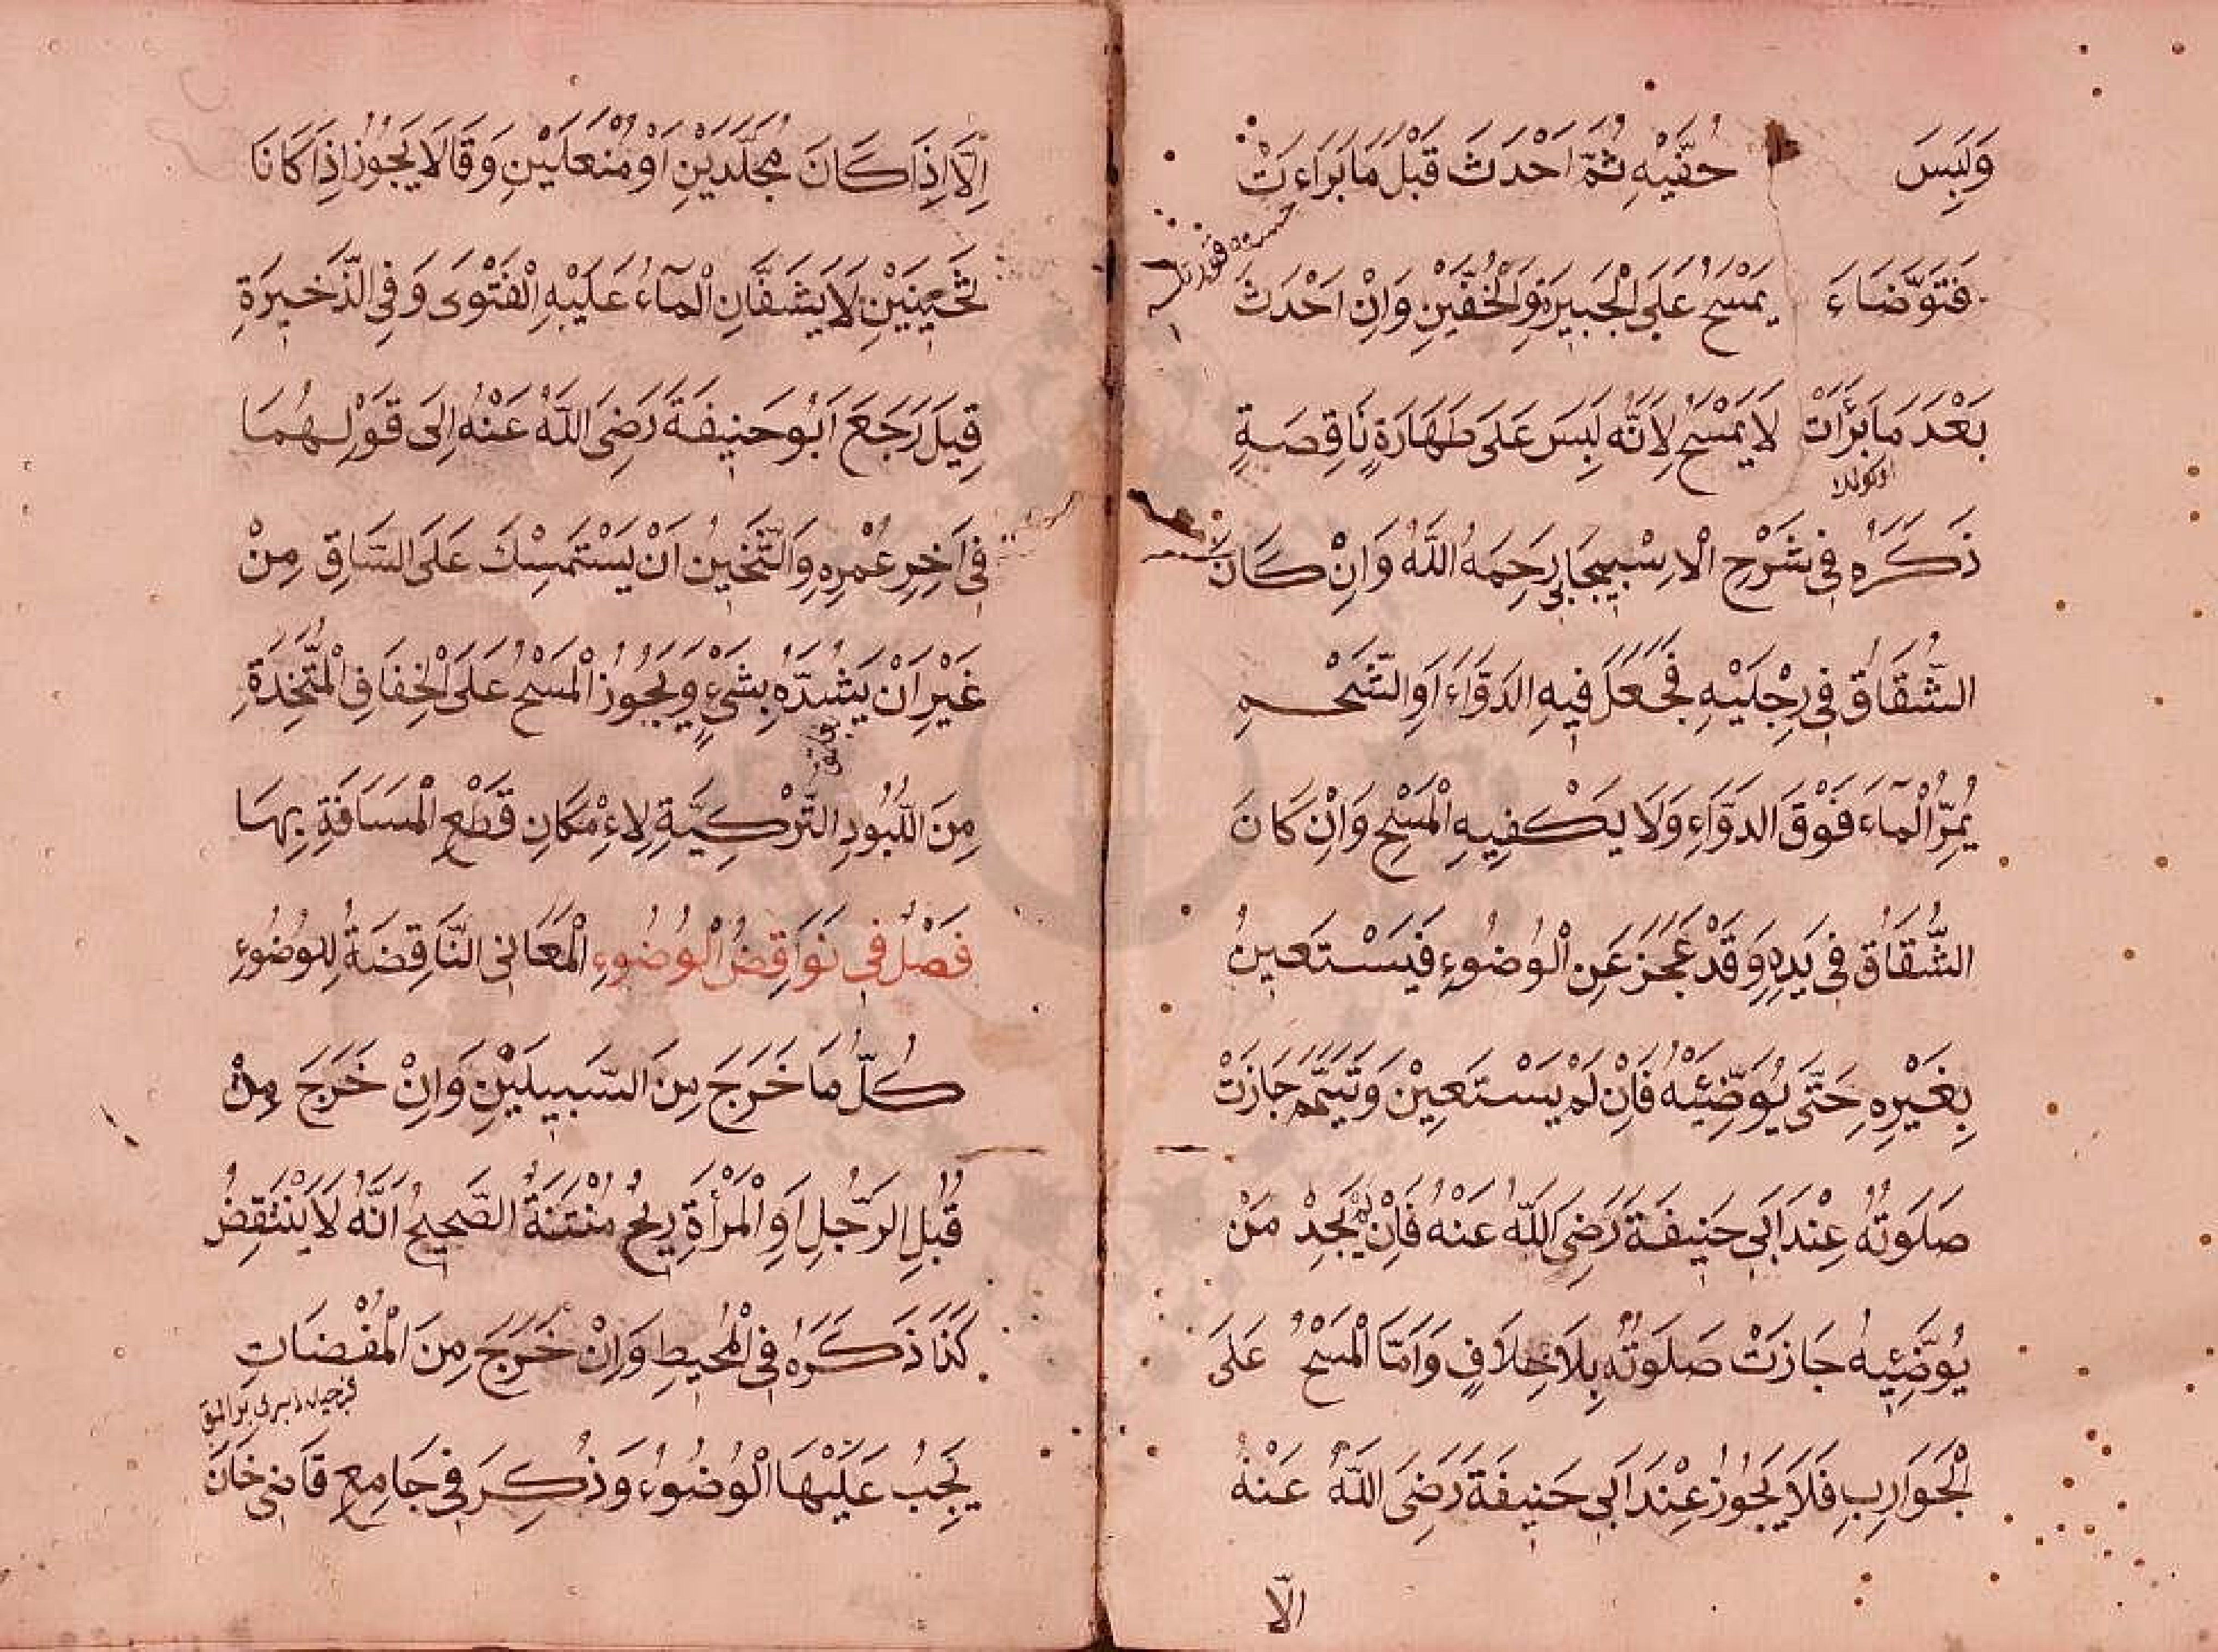 وَلَبِسَ خُفَّيْهِ ثُمَّ اَحْدَثَ قَبْلَ مَا بَرَاءَتْ
فَتَوَضَّاءَ يَمْسَحُ عَلَى الْجَبِيرَةِ وَالْخُفَّيْنِ وَاِنْ اَحْدَثَ
بَعْدَ مَا بَرَأَتْ لَا يَمْسَحُ لِاَنَّهُ لَبِسَ عَلَى طَهَارَةٍ نَاقِصَةٍ
ذَكَرَهُ فِى شَرْحِ الْاِسْبِيجَابِى رَحِمَهُ اللّٰهُ وَاِنْ كَانَ
الشُّقَاقُ فِى رِجْلَيْهِ فَجَعَلَ فِيهِ الدَّوَاءَ اَوِ الشَّحْمِ
يُمِرُّ الْمَآءَ فَوْقَ الدَّوَاءِ وَلَا يَكْفِيهِ الْمَسْحِ وَاِنْ كَانَ
الشُّقَاقُ فِى يَدِهِ وَقَدْ عَجَزَ عَنِ الْوُضُوءِ فَيَسْتَعِينُ
بِغَيْرِهِ حَتَّى يُوَضِّئَهُ فَاِنْ لَمْ يَسْتَعِيْنْ وَتَيَمَّمَ جَازَتْ
صَلَوتُهُ عِنْدَ اَبِى حَنِيفَةَ رَضِىَ اللّٰهُ عَنْهُ فَاِنْ لَمْ يَجِدْ مَنْ
يُوَضِّئِيهُ جَازَتْ صَلَوتُهُ بِلَا خِلَافٍ وَاَمَّا الْمَسْحُ عَلَى
الْجَوَارِبِ فَلَا يَجُوزُ عِنْدَ اَبِى حَنِيفَةَ رَضِىَ اللّٰهُ عَنْهُ
اِلَّا
اِلَّا اِذَا كَانَ مُجَلَّدَيْنِ اَوْ مُنْعَلَيْنِ وَقَالَا يَجُوزُ اِذَا كَانَا
ثَخِينَيْنِ لَا يَشَفَّانِ الْمَآءَ عَلَيْهِ الْفَتْوَى وَفِى الذَّخِيرَةِ
قِيلَ رَجَعَ اَبُو حَنِيفَةَ رَضِىَ اللّٰهُ عَنْهُ اِلَى قَوْلِهُمَا
فِى اَخِرِ عُمْرِهِ وَالثَّخِينُ اَنْ يَسْتَمْسِكَ عَلَى السَّاقِ مِنْ
غَيْرِ اَنْ يَشُدَّهُ بِشَىْءٍ وَيَجُوزُ الْمَسْحُ عَلَى الْخِفَافِ الْمُتَّخِذَةِ
مِنَ اللُّبُودِ التُّرْكِيَّةِ لِاِمْكَانِ قَطْعِ الْمَسَافَةِ بِهَا
فَصْلٌ فِى نَوَاقِضُ الْوُضُوءِ الْمَعَانِى النَّاقِضَةُ لِلْوُضُوءِ
كُلُّ مَا خَرَجَ مِنَ السَّبِيلَيْنِ وَاِنْ خَرَجَ مِنْ
قُبُلِ الرَّجُلِ اَوِ الْمَرْأَةِ رِيحٌ مُنْتَنَةٌ الصَّحِيحُ اَنَّهُ لَا يَنْتَقِضُ
كَذَا ذَكَرَهُ فِى الْمُحِيطِ وَاِنْ خَرَجَ مِنَ الْمُفْضَاتِ
يَجِبُ عَلَيْهَا الْوُضُوءُ وَذُكِرَ فِى جَامِعِ قَاضِى خَانَ